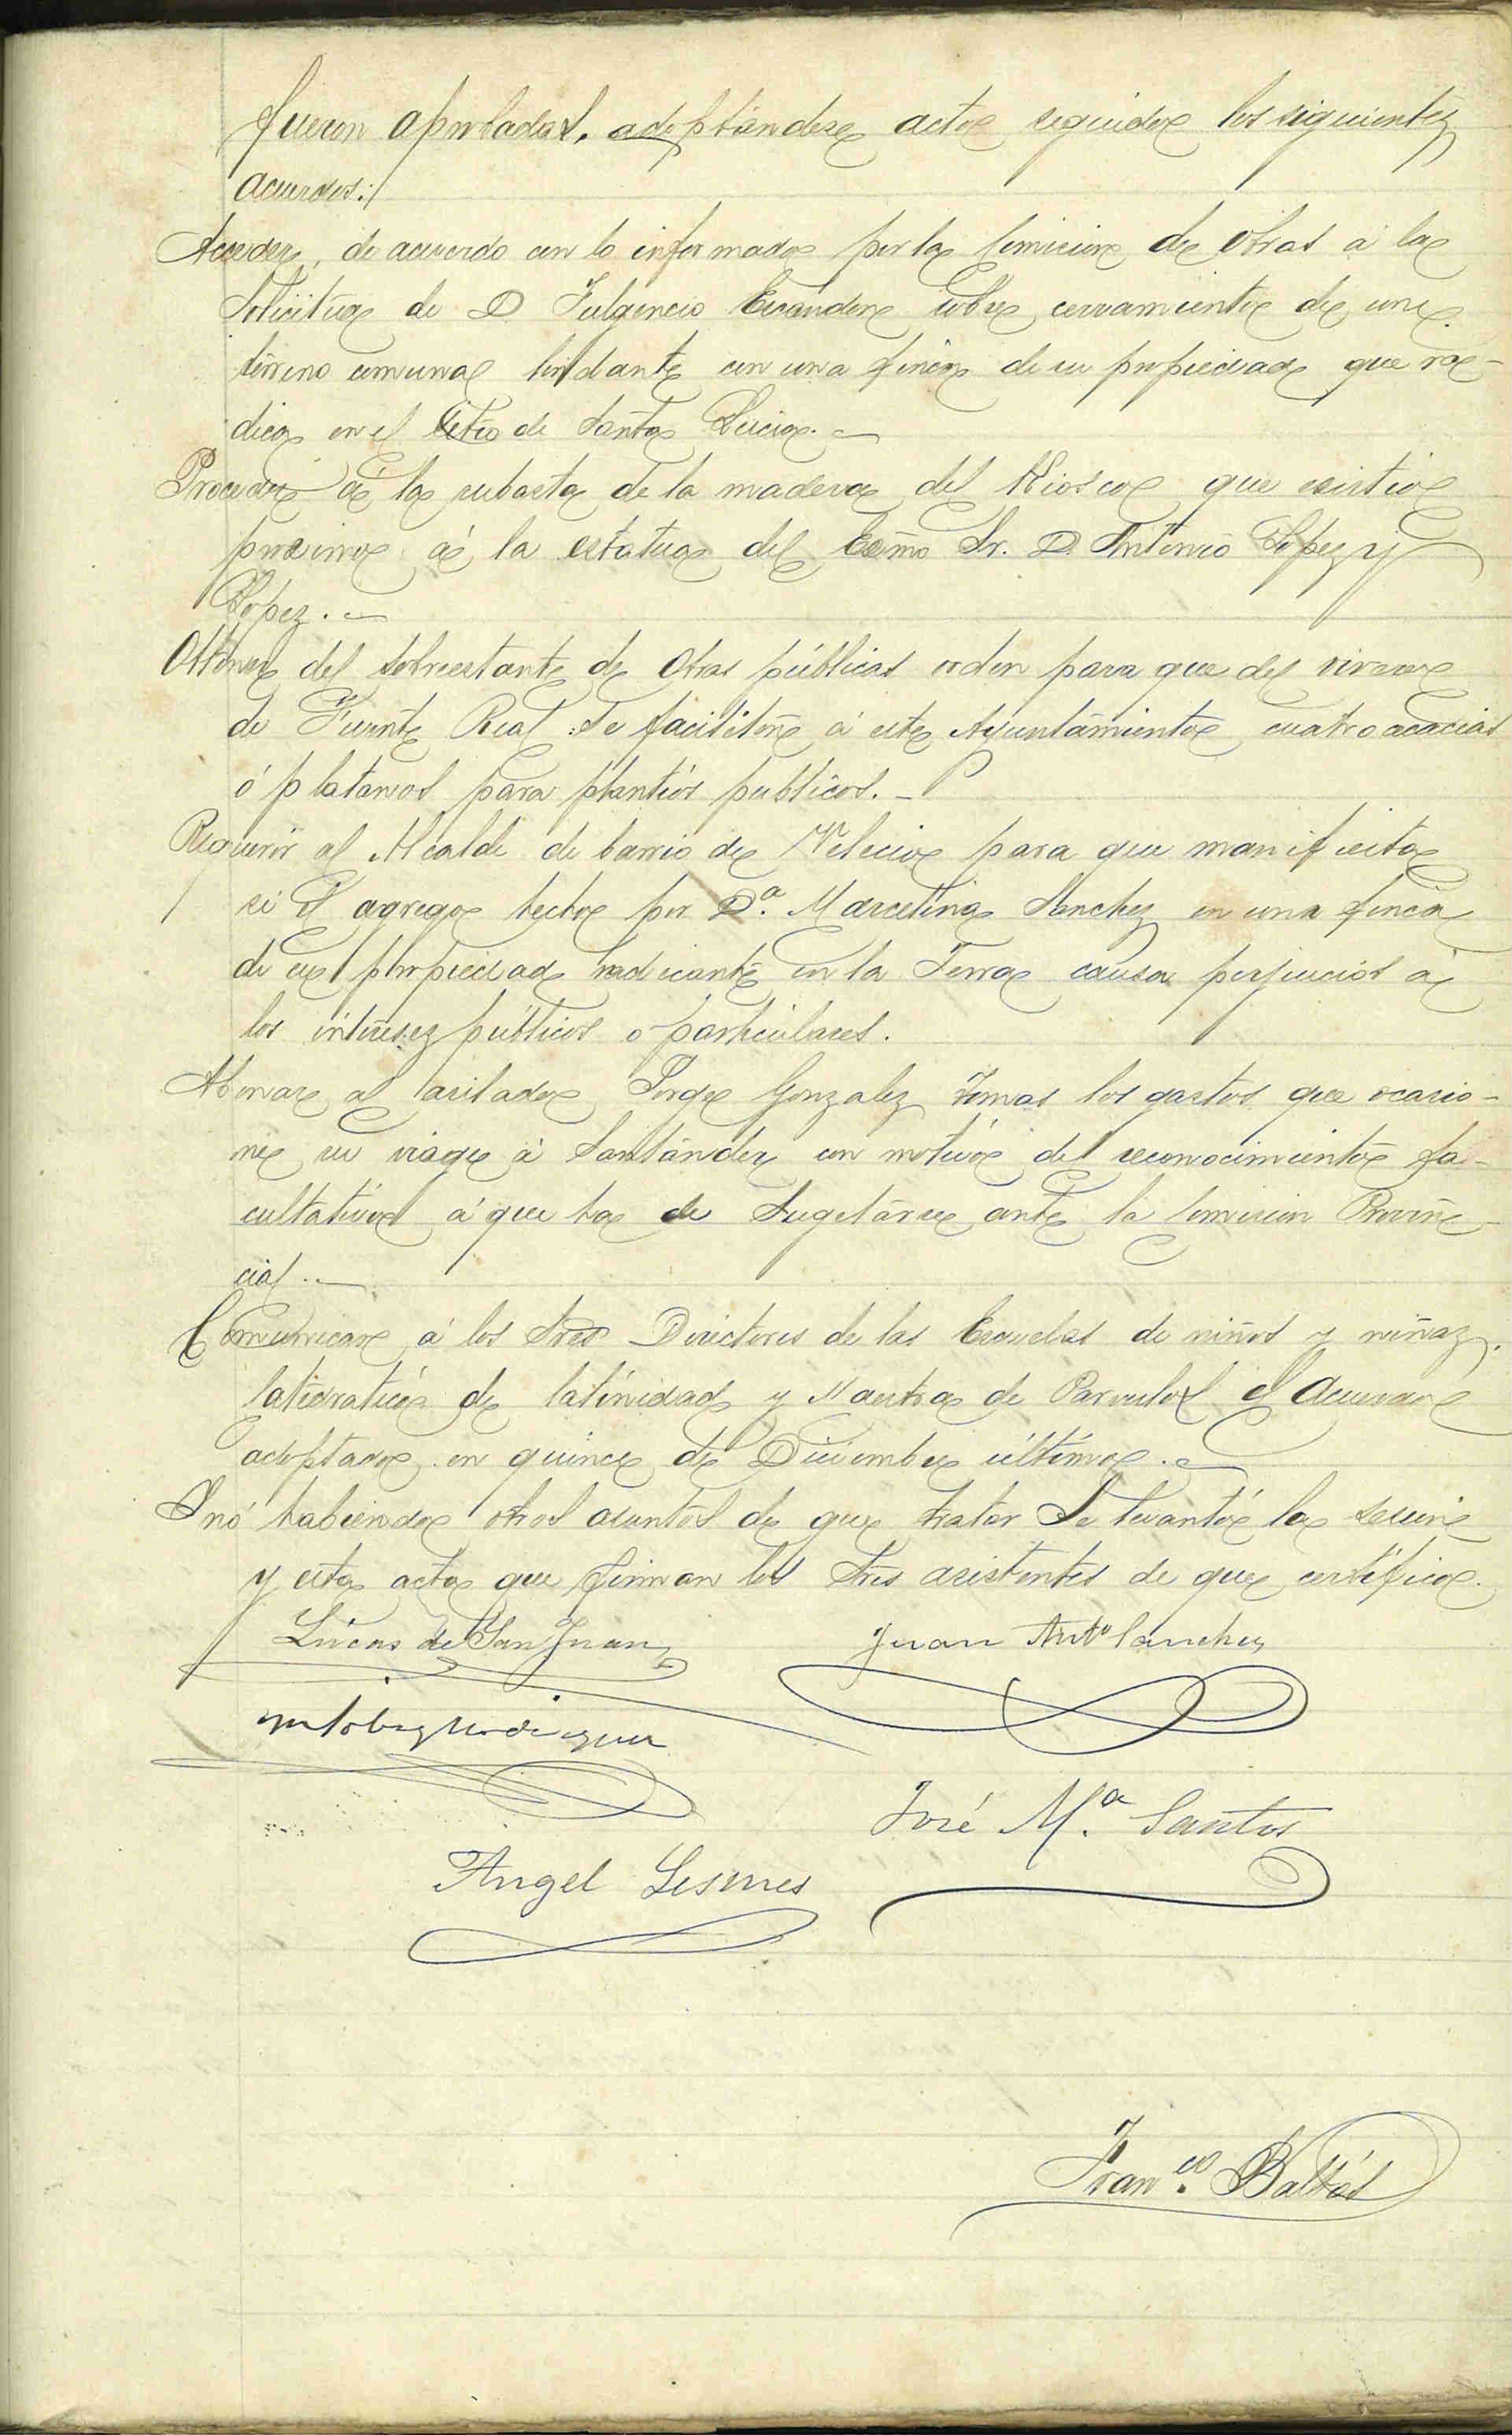 fueron aprobadas, adoptándose acto seguido los siguientes
acuerdos:
Acceder, de acuerdo con lo informado por la Comision de obras á la
solicitud de D Fulgencio Escandon sobre cerramiento de un
terreno comunal lindante con una finca de su propiedad que ra-
dica en el sitio de Santa Lucia.
Proceder á la subasta de la madera del Kiosco que existio
proximo á la estatua del Excmo Sr. D. Antonio Lopez y
Lopez.
Obtener del sobrestante de Obras públicas orden para que del vivero
de Fuente Real se faciliten á este Ayuntamiento cuatro acacias
ó platanos para plantíos publicos.
Requerir al Alcalde de barrio de Velecio para que manifieste
si el agrego hecho por Dª. Marcelina Sanchez en una finca
de su propiedad radicante en la Terra causa perjuicios á
los intereses públicos o particulares.
Abonar al asilado Jorge Gonzalez los gastos que ocasio-
ne su viage á Santander con motivo del reconocimiento fa-
cultativo á que ha de sugetarse ante la Comision Provin-
cial.
Comunicar á los Sres Directores de las Escuelas de niños y niñas,
Catedratico de latinidad y Maestra de Parvulos el acuerdo
adoptado en quince de Diciembre último.
Y no habiendo otros asuntos de que tratar se levantó la sesion
y esta acta que firman los Sres asistentes de que certifico.
Lucas de San Juan
Juan Antº Sanchez
José Mª. Santos
Angel Lesmes
Franco. Baltés